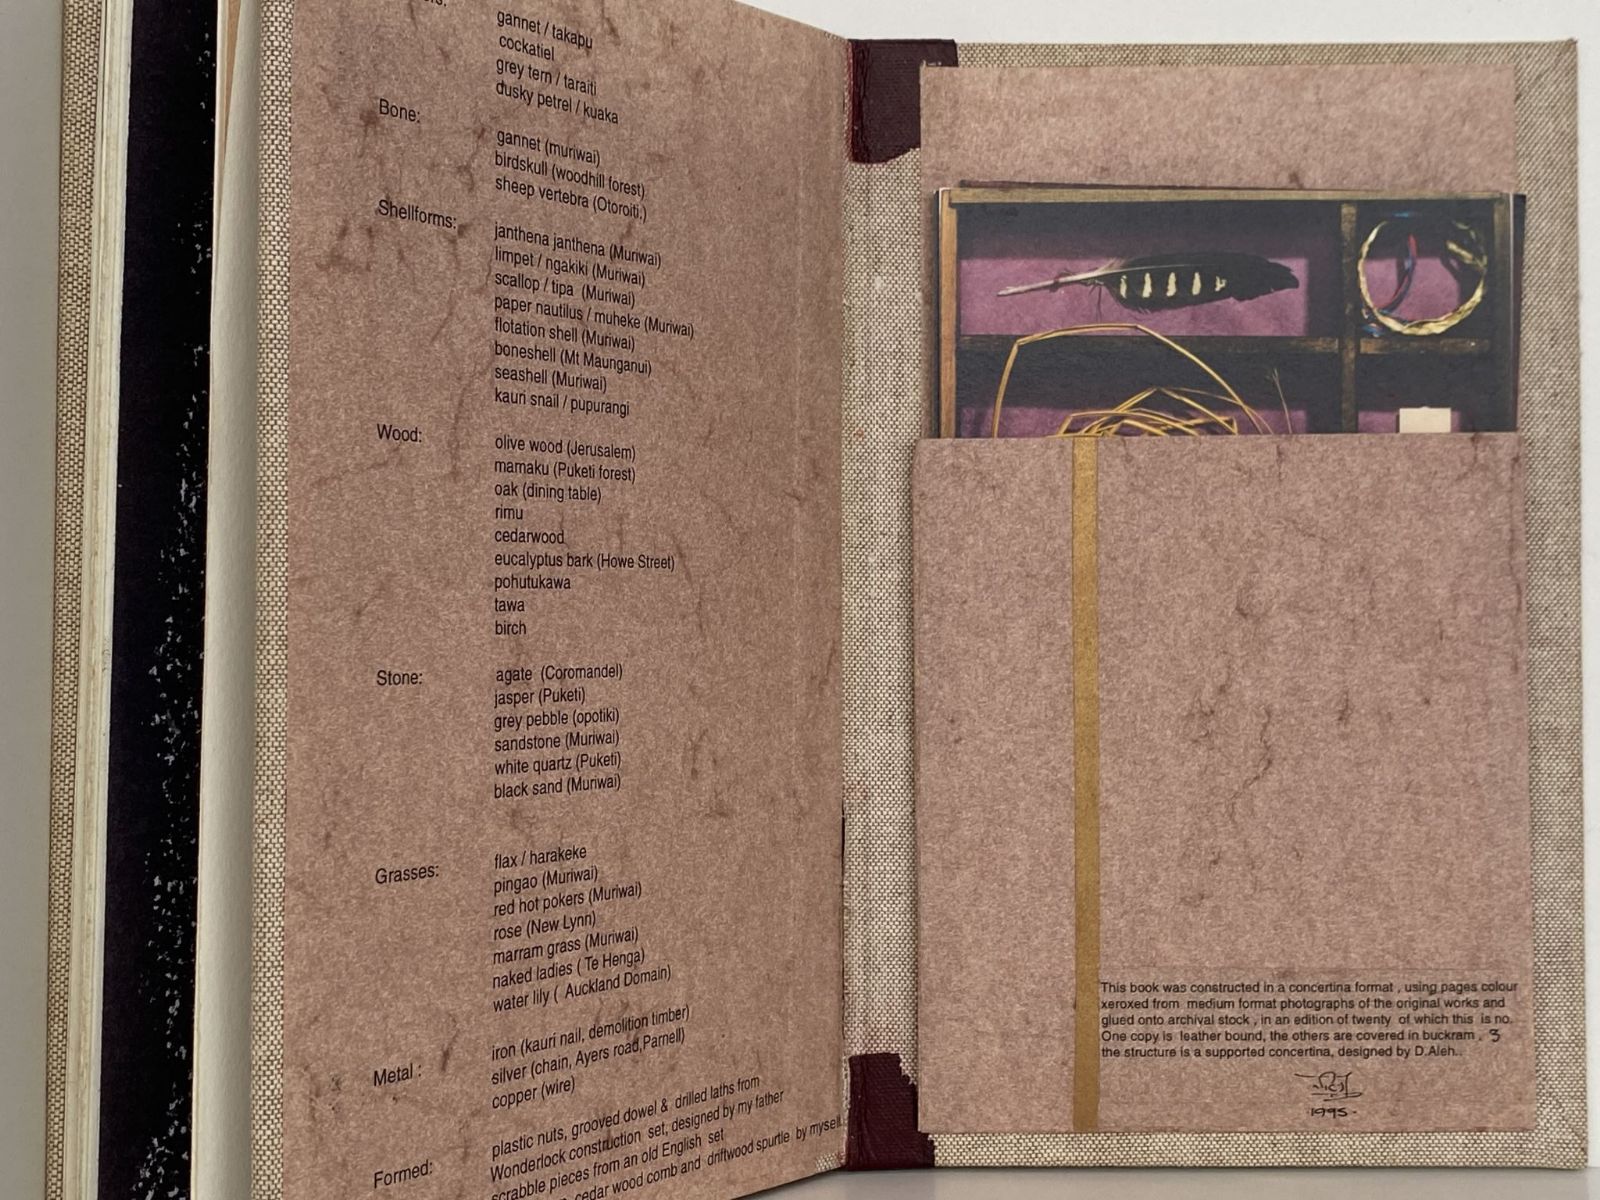 gannet / takapu
cockatiel
grey tern / taraiti
dusky petrel / kuaka
Bone:
gannet (muriwai)
birdskull (woodhill forest)
sheep vertebra (Otoroiti.)
Shellforms:
janthena janthena (Muriwai)
limpet / ngakiki (Muriwai)
scallop / tipa (Muriwai)
paper nautilus / muheke (Muriwai)
flotation shell (Muriwai)
boneshell (Mt Maunganui)
seashell (Muriwai)
kauri snail / pupurangi
Wood:
olive wood (Jerusalem)
mamaku (Puketi forest)
oak (dining table)
rimu
cedarwood
eucalyptus bark (Howe Street)
pohutukawa
tawa
birch
Stone:
agate (Coromandel)
jasper (Puketi)
grey pebble (opotiki)
sandstone (Muriwai)
white quartz (Puketi)
black sand (Muriwai)
Grasses:
flax / harakeke
pingao (Muriwai)
red hot pokers (Muriwai)
rose (New Lynn)
marram grass (Muriwai)
naked ladies ( Te Henga)
water lily ( Auckland Domain)
Metal :
iron (kauri nail, demolition timber)
silver (chain, Ayers road,Parnell)
copper (wire)
Formed:
plastic nuts, grooved dowel & drilled laths from
Wonderlock construction set, designed by my father
scrabble pieces from an old English set
cedar wood comb and driftwood spurtle by myself
This book was constructed in a concertina format , using pages colour
xeroxed from medium format photographs of the original works and
glued onto archival stock , in an edition of twenty of which this is no.
One copy is leather bound, the others are covered in buckram . 3
the structure is a supported concertina, designed by D.Aleh..
1995.